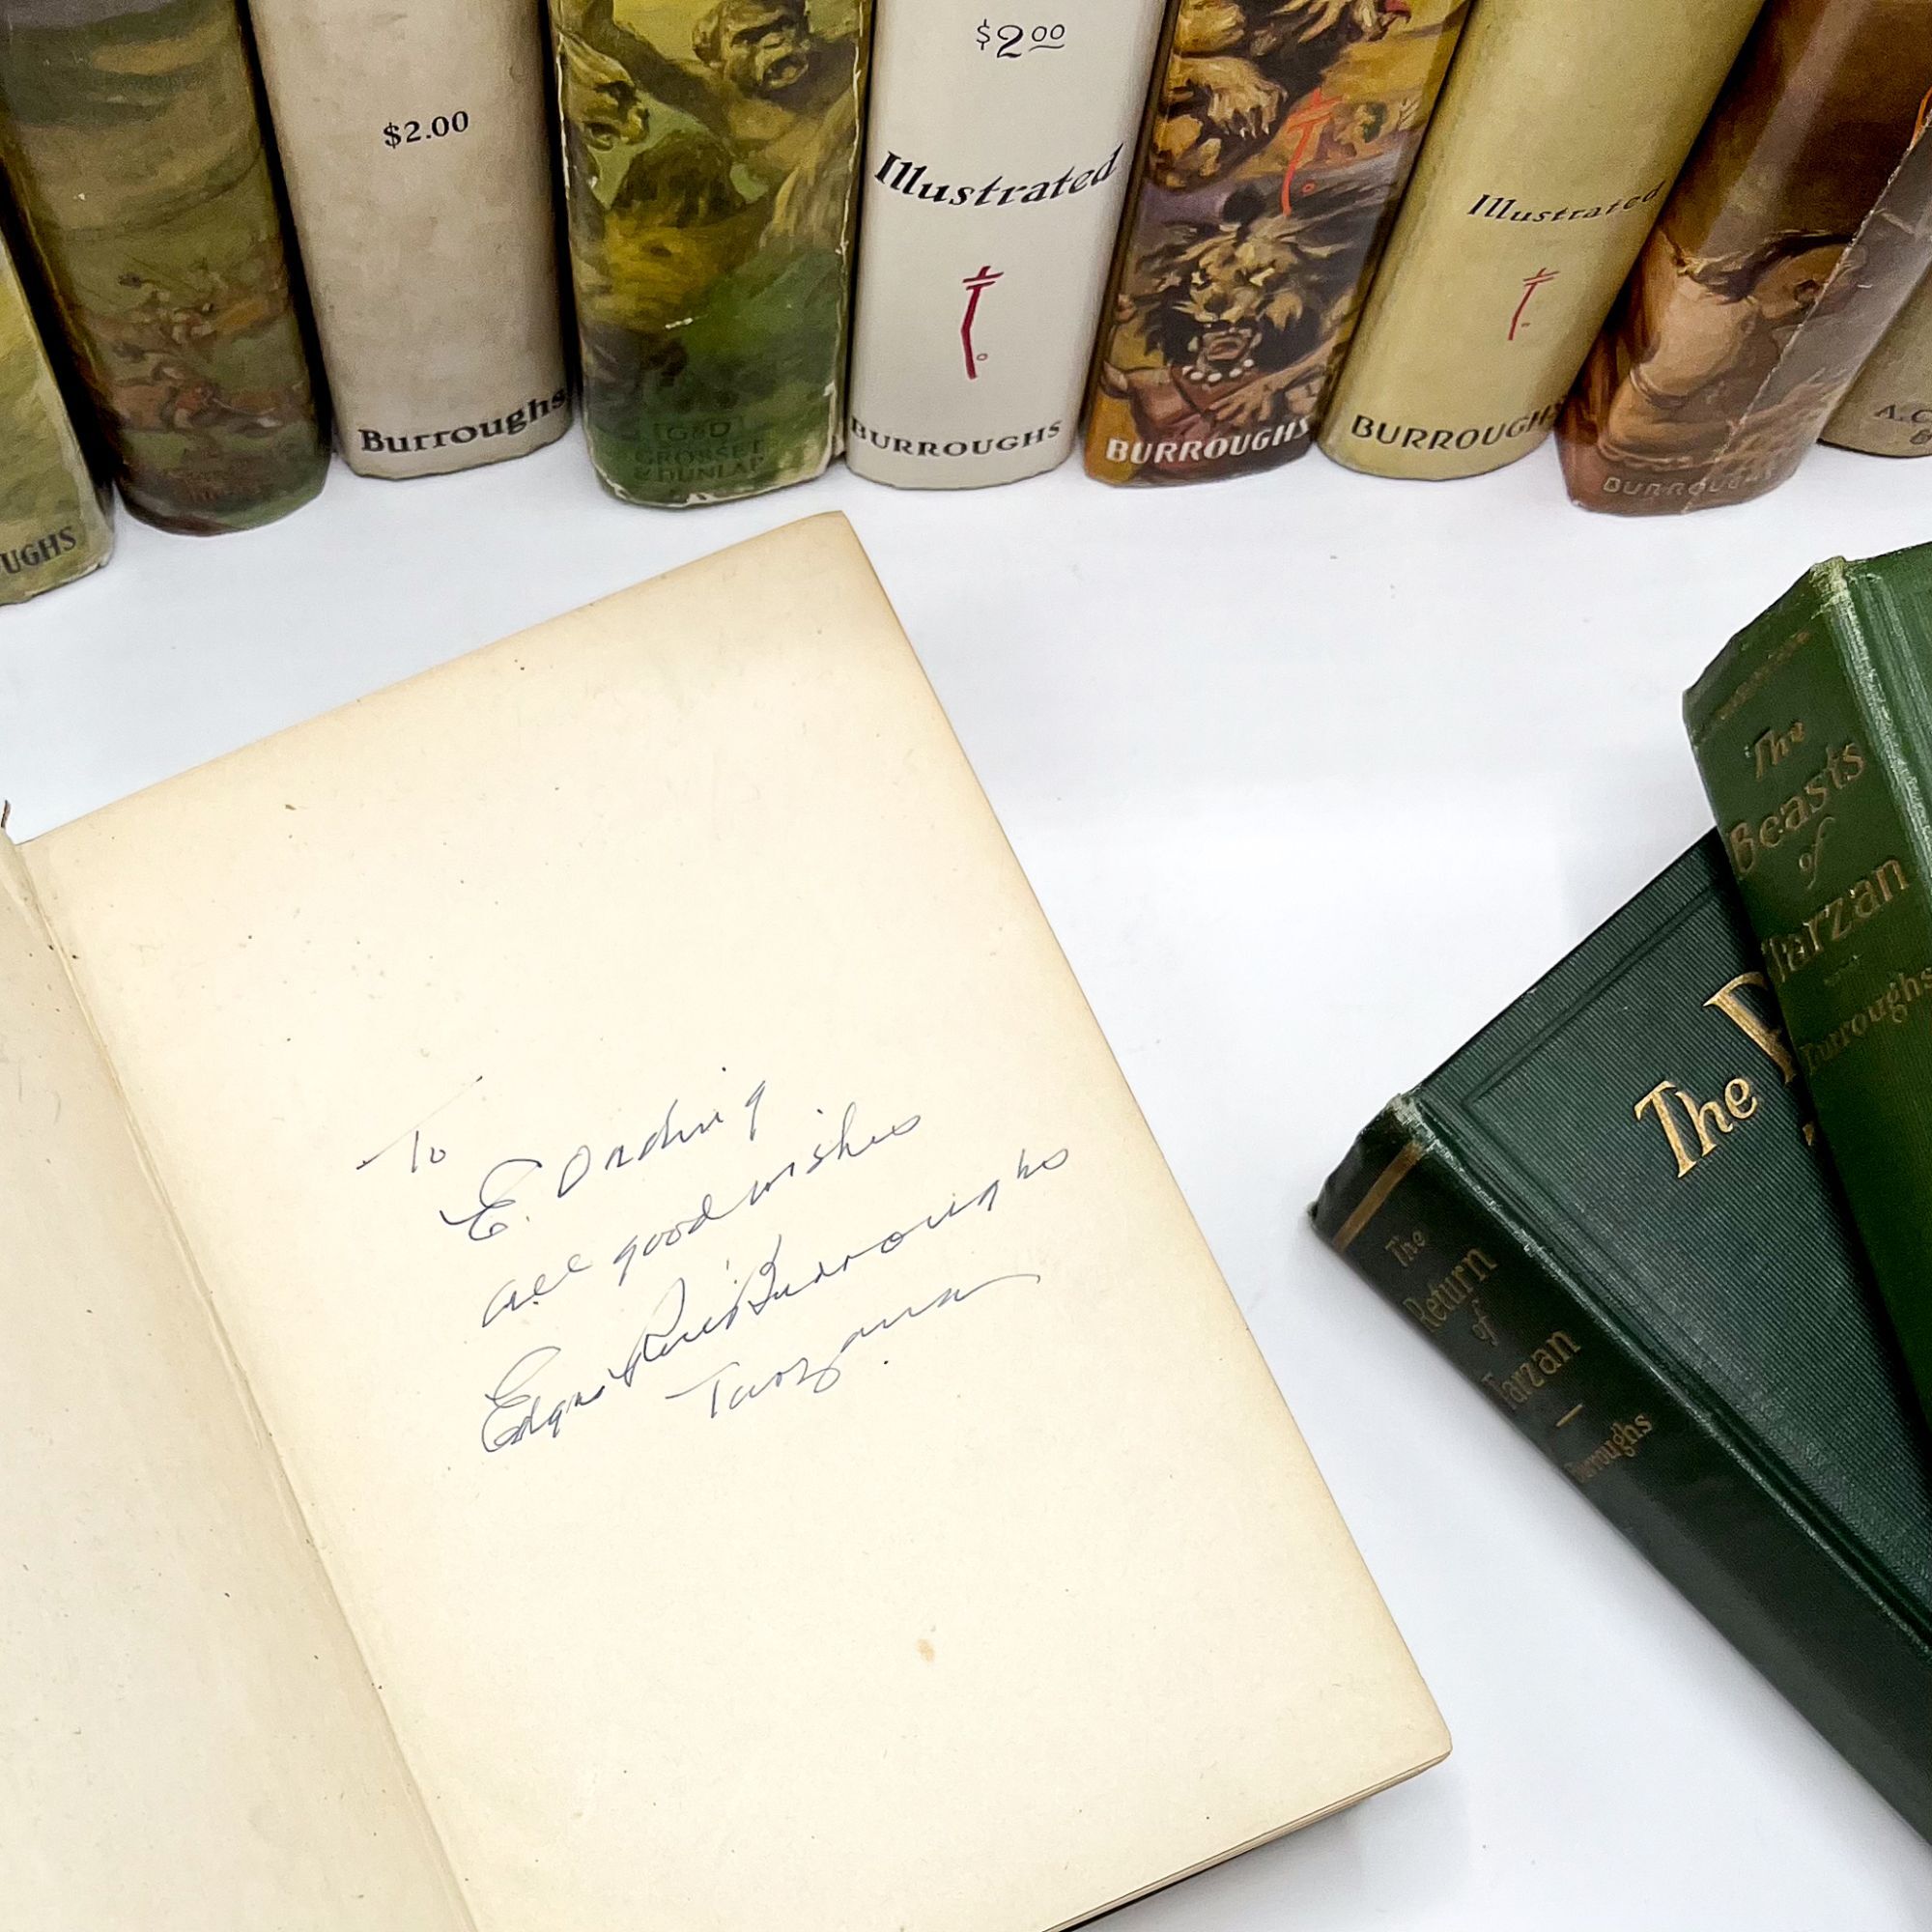 $2.00
Burroughs
G&D
GROSSET
& DUNLAP
$2.00
Illustrated
BURROUGHS
BURROUGHS
Illustrated
BURROUGHS
BURROUGHS
UGHS
A.C.
&
To
E. Ording
all good wishes
Edgar Rice Burroughs
Tarzana
The
Beasts
of
Tarzan
Burroughs
The
The
Return
of
Tarzan
Burroughs